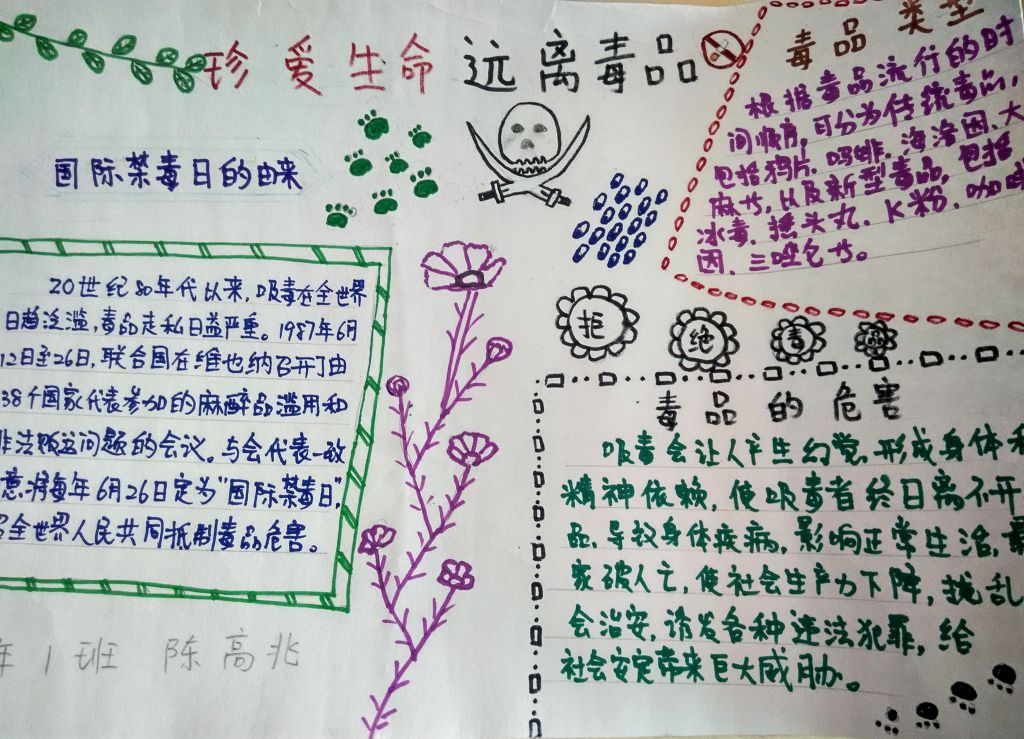 珍爱生命远离毒品
国际禁毒日的由来
20世纪80年代以来,吸毒在全世界
日趋泛滥,毒品走私日益严重。1987年6月
12日至26日,联合国在维也纳召开了由
38个国家代表参加的麻醉品滥用和
非法贩运问题的会议。与会代表一致
意将每年6月26日定为"国际禁毒日",
全世界人民共同抵制毒品危害。
年1班 陈高兆
毒品类型
根据毒品流行的时
间顺序,可分为传统毒品,
包括鸦片、吗啡、海洛因、大
麻等,以及新型毒品,包括
冰毒、摇头丸、K粉、咖啡
因、三唑仑等。
拒绝毒
毒品的危害
吸毒会让人产生幻觉,形成身体和
精神依赖,使吸毒者终日离不开
品,导致身体疾病,影响正常生活,
家破人亡,使社会生产力下降,扰乱
会治安,诱发各种违法犯罪,给
社会安定带来巨大威胁。